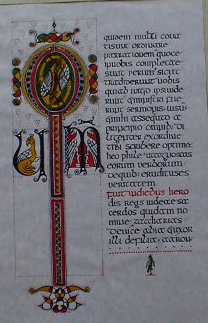 quidem multi conati
sunt ordinare
narrationem quae
nobis complete
sunt rerum sicut
tradiderunt nobis
quiab initio ipsi vide
runt et ministri fue
runt sermonis
assequto a
principio
diligenter exordine
tibi scribere optime
theophile
eorum verborum
dequib: eruditus es
veritatem
Fuit indiebus hero
dis regis iudeae sa
cerdos quidam no
mine zaccharias
device abia
illi defiliab: aaron